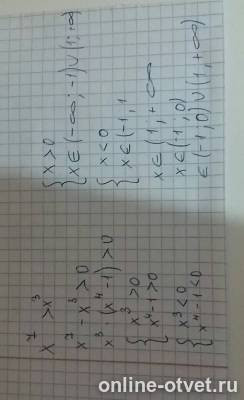 x⁷ > x³
x⁷ - x³ > 0
x³(x⁴-1) > 0
{ x³ > 0
x⁴-1 > 0
{ x³ < 0
x⁴-1 < 0
{ x > 0
x ∈ (-∞; -1) ∪ (1; +∞)
{ x < 0
x ∈ (-1; 1
x ∈ (1; +∞
x ∈ (1; 0)
∈ (-1; 0) ∪ (1, +∞)
online-otvet.ru